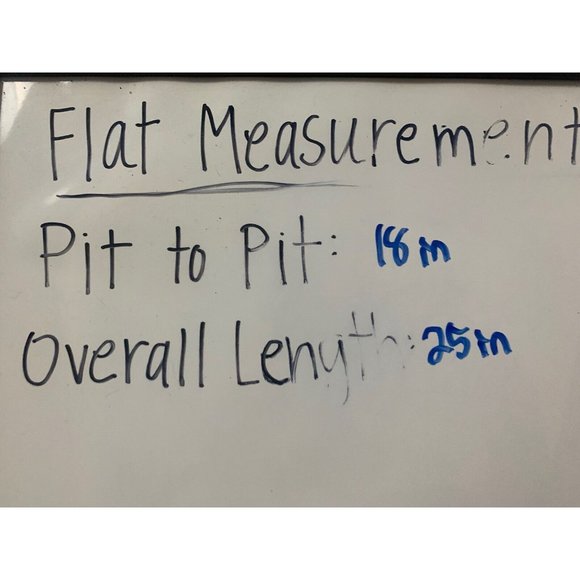 Flat Measurement
Pit to Pit: 18in
Overall Length: 25in